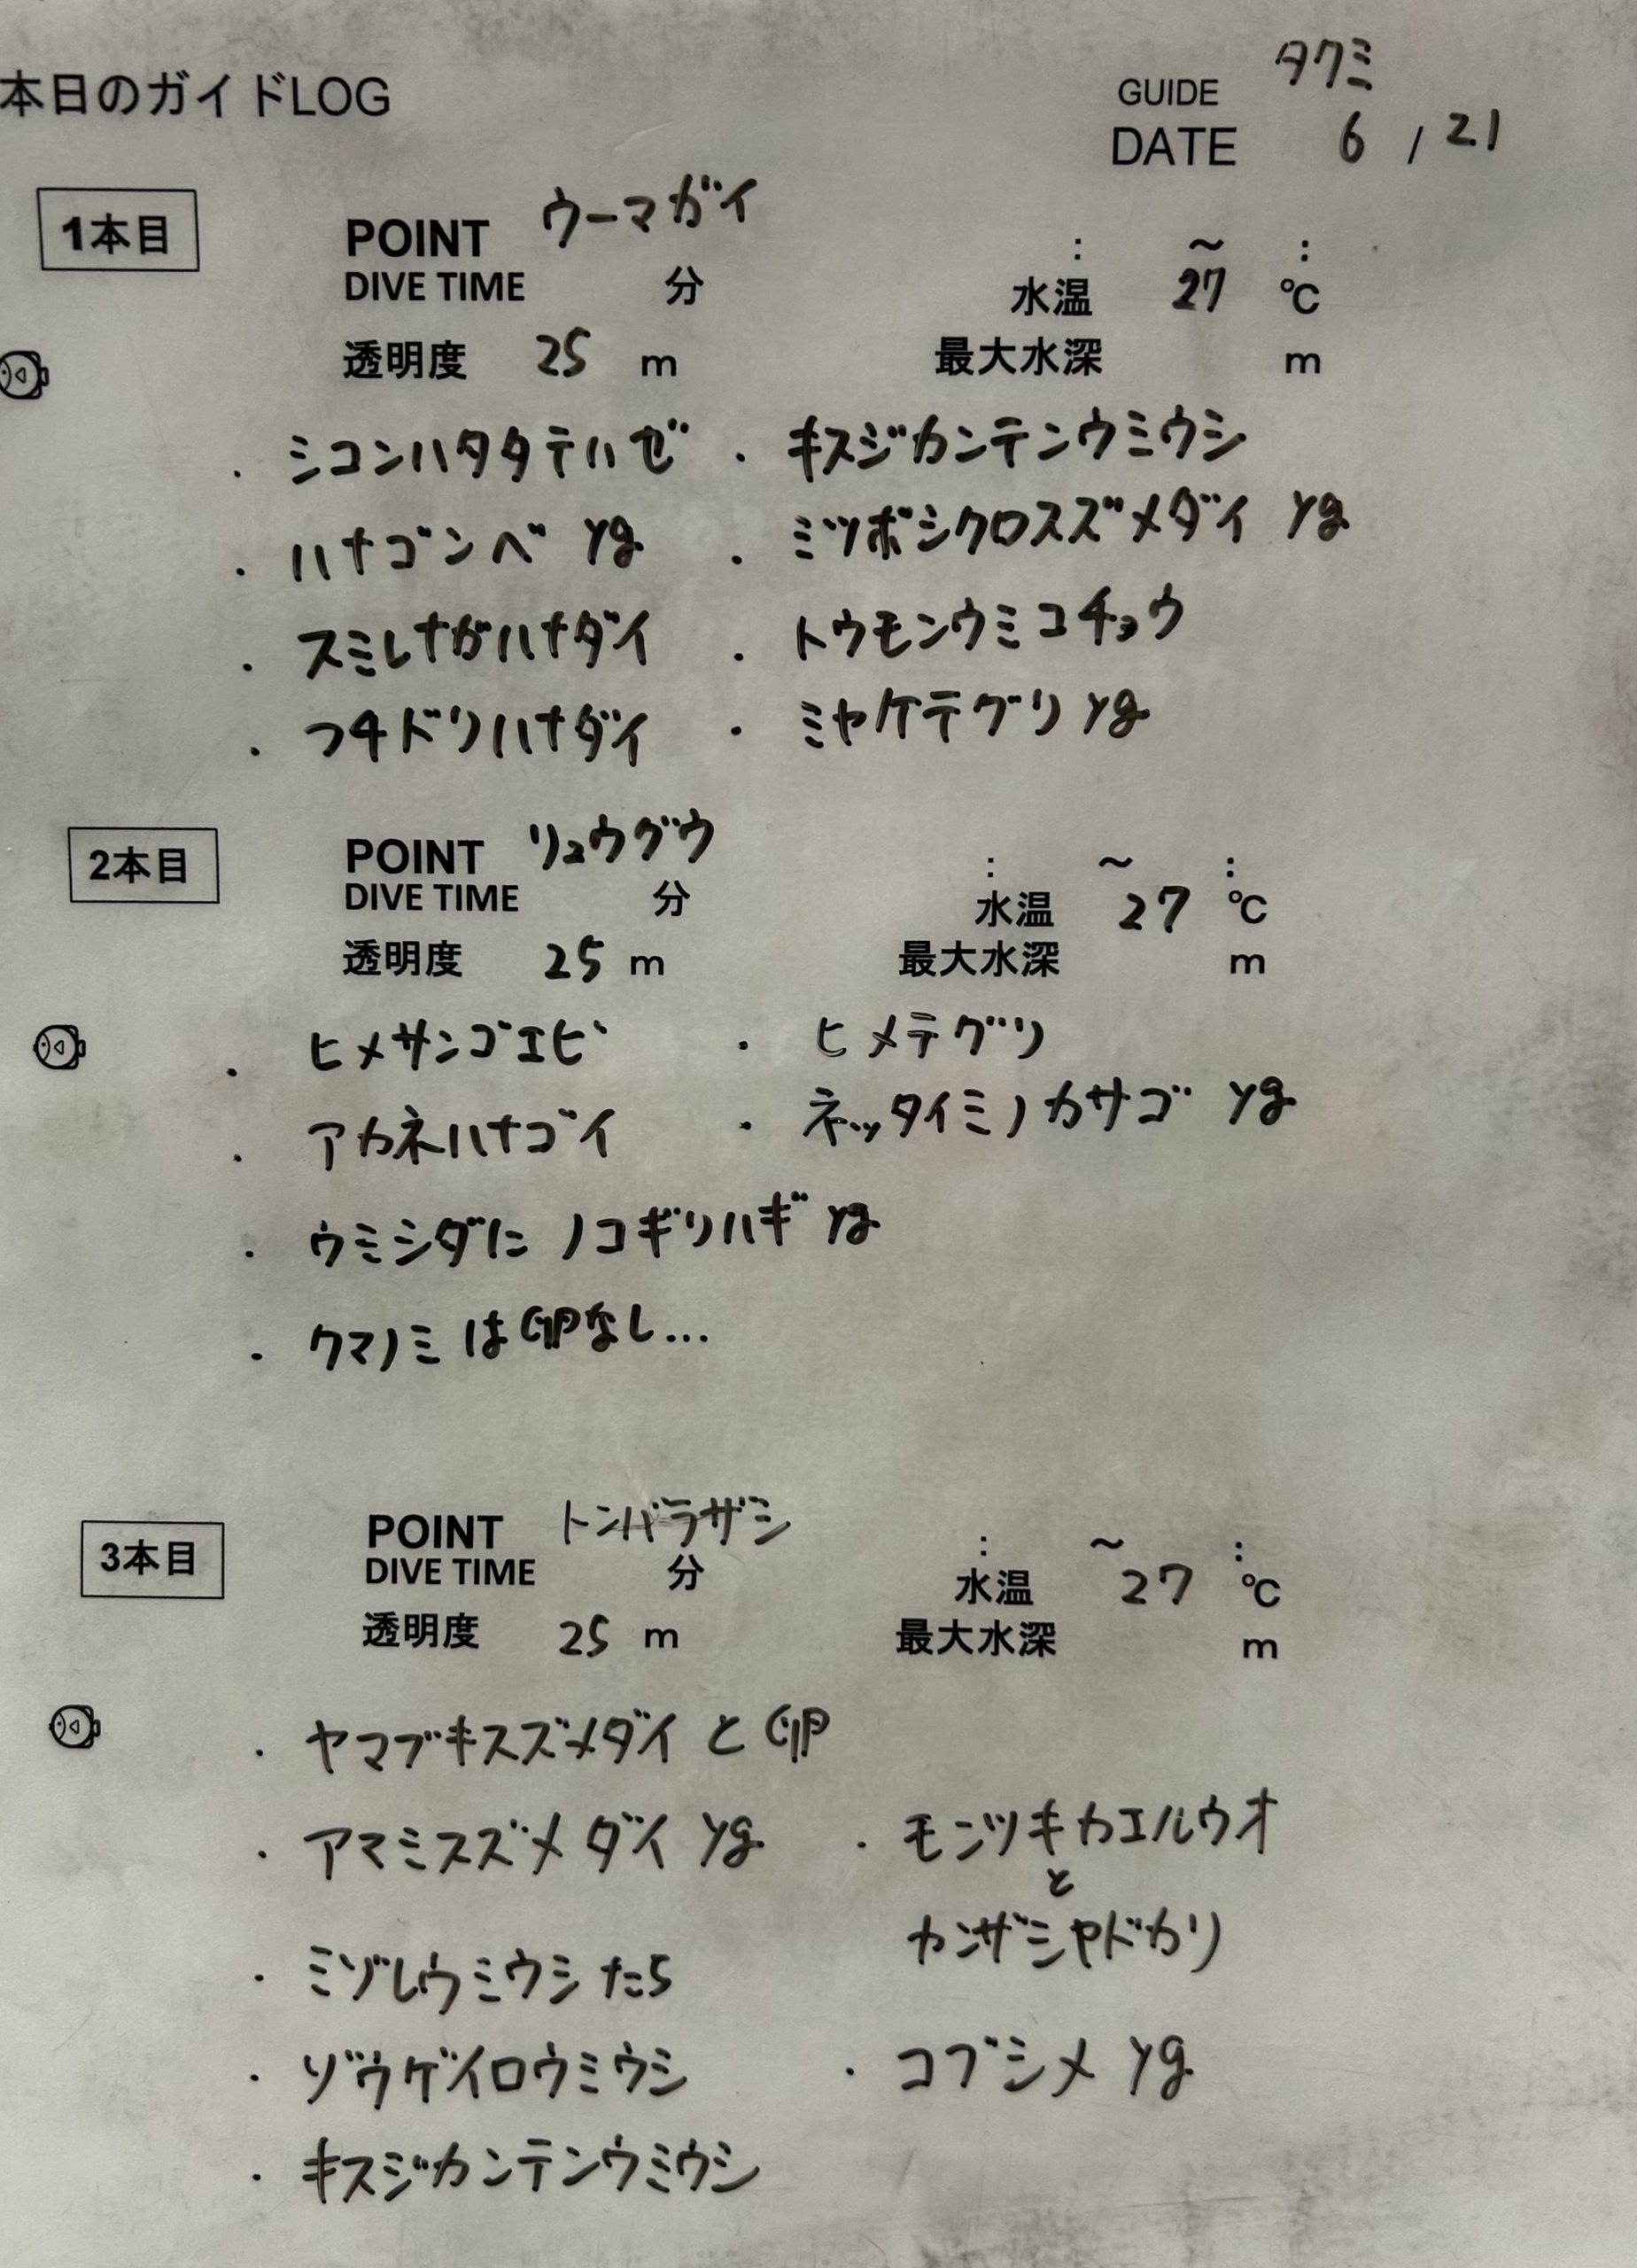 本日のガイドLOG
GUIDE タクミ
DATE 6 / 21
1本目
POINT ウーマガイ : ～ :
DIVE TIME 分 水温 27 ℃
透明度 25 m 最大水深 m
・シコンハタタテハゼ ・キスジカンテンウミウシ
・ハナゴンベ yg ・ミツボシクロスズメダイ yg
・スミレナガハナダイ ・トウモンウミコチョウ
・フチドリハナダイ ・ミヤケテグリ yg
2本目
POINT リュウグウ : ～ :
DIVE TIME 分 水温 27 ℃
透明度 25 m 最大水深 m
・ヒメサンゴエビ ・ヒメテグリ
・アカネハナゴイ ・ネッタイミノカサゴ yg
・ウミシダに ノコギリハギ yg
・クマノミは卵なし…
3本目
POINT トンバラザシ : ～ :
DIVE TIME 分 水温 27 ℃
透明度 25 m 最大水深 m
・ヤマブキスズメダイと卵
・アマミスズメダイ yg ・モンツキカエルウオ
と
カンザシヤドカリ
・ミゾレウミウシたち
・ゾウゲイロウミウシ ・コブシメ yg
・キスジカンテンウミウシ